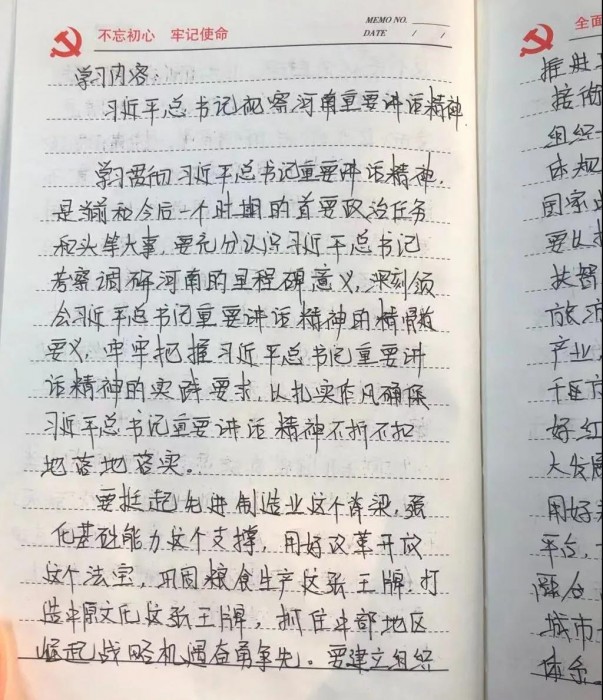 不忘初心 牢记使命
MEMO NO.
DATE / /
学习内容:
习近平总书记视察河南重要讲话精神
学习贯彻习近平总书记重要讲话精神,
是当前和今后一个时期的首要政治任务
和头等大事,要充分认识习近平总书记
考察调研河南的里程碑意义,深刻领
会习近平总书记重要讲话精神的精髓
要义,牢牢把握习近平总书记重要讲
话精神的实践要求,以扎实作风确保
习近平总书记重要讲话精神不折不扣
地落地落实。
要挺起先进制造业这个脊梁,强
化基础能力这个支撑,用好改革开放
这个法宝,巩固粮食生产这张王牌,打
造中原文化这张王牌,抓住中部地区
崛起战略机遇奋勇争先。要建立组织
全面
推进
接衔
组织
体规
国家
要以
扶智
旅游
产业
千
好红
大发展
用好
平台,
融合
城市
体系